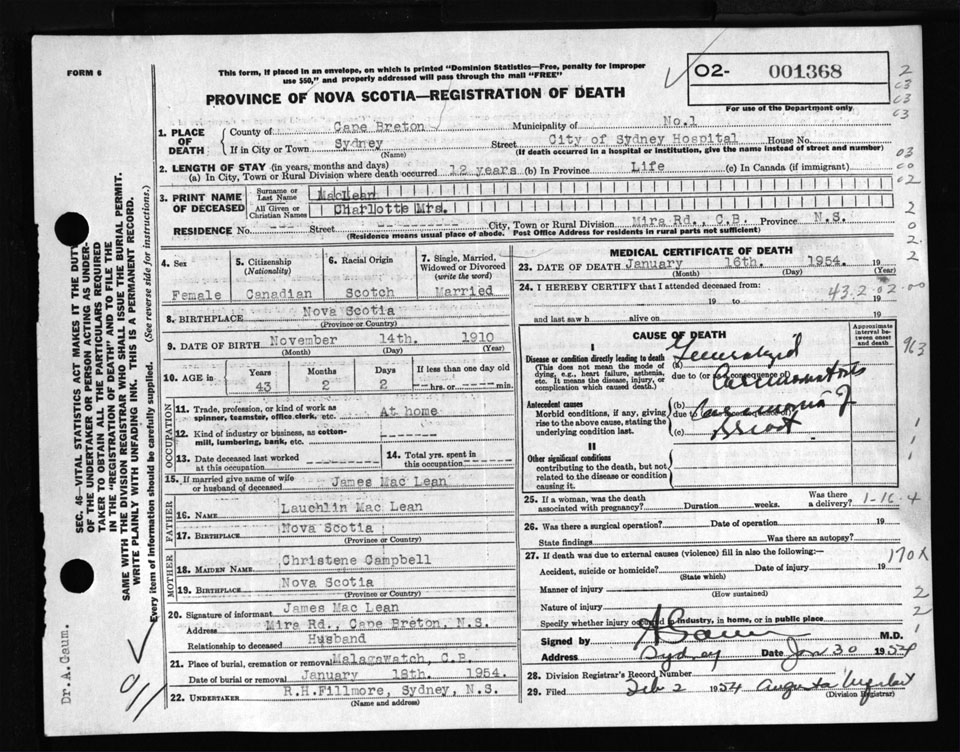 FORM 6
This form, if placed in an envelope, on which is printed "Dominion Statistics—Free, penalty for improper
use $50," and properly addressed will pass through the mail "FREE"
PROVINCE OF NOVA SCOTIA—REGISTRATION OF DEATH
02- 001368
For use of the Department only
1. PLACE OF DEATH
County of Cape Breton Municipality of No.1
If in City or Town Sydney Street City of Sydney Hospital House No.
(Name) (If death occurred in a hospital or institution, give the name instead of street and number)
2. LENGTH OF STAY (in years, months and days)
(a) In City, Town or Rural Division where death occurred 12 years (b) In Province Life (c) In Canada (if immigrant)
3. PRINT NAME OF DECEASED
Surname or Last Name MacLean
All Given or Christian Names Charlotte Mrs.
RESIDENCE No. Street City, Town or Rural Division Mira Rd., C.B. Province N.S.
(Residence means usual place of abode. Post Office Address for residents in rural parts not sufficient)
4. Sex
Female
5. Citizenship
(Nationality)
Canadian
6. Racial Origin
Scotch
7. Single, Married,
Widowed or Divorced
(write the word)
Married
8. BIRTHPLACE Nova Scotia
(Province or Country)
9. DATE OF BIRTH November 14th. 1910
(Month) (Day) (Year)
10. AGE in
Years Months Days If less than one day old
43 2 2 hrs. or min.
OCCUPATION
11. Trade, profession, or kind of work as
spinner, teamster, office clerk, etc. At home
12. Kind of industry or business, as cotton-
mill, lumbering, bank, etc.
13. Date deceased last worked
at this occupation
14. Total yrs. spent in
this occupation
15. If married give name of wife
or husband of deceased James Mac Lean
FATHER
16. NAME Lauchlin Mac Lean
17. BIRTHPLACE Nova Scotia
(Province or Country)
MOTHER
18. MAIDEN NAME Christene Campbell
19. BIRTHPLACE Nova Scotia
(Province or Country)
20. Signature of informant James Mac Lean
Address Mira Rd., Cape Breton, N.S.
Relationship to deceased Husband
21. Place of burial, cremation or removal Malagawatch, C.B.
Date of burial or removal January 18th. 1954.
22. UNDERTAKER R.H.Fillmore, Sydney, N.S.
(Name and address)
MEDICAL CERTIFICATE OF DEATH
23. DATE OF DEATH January 16th. 1954. 19
(Month) (Day) (Year)
24. I HEREBY CERTIFY that I attended deceased from
19 to 19
43.2.02.00
and last saw h alive on 19
CAUSE OF DEATH
Approximate interval between onset and death
I
Disease or condition directly leading to death
(This does not mean the mode of
dying, e.g., heart failure, asthenia,
etc. It means the disease, injury, or
complication which caused death.)
(a) Generalized
due to (or as a consequence of)
Carcinomatosis
Antecedent causes
Morbid conditions, if any, giving
rise to the above cause, stating the
underlying condition last.
(b) Carcinoma of
due to (or as a consequence of)
(c) Breast
II
Other significant conditions
contributing to the death, but not
related to the disease or condition
causing it.
25. If a woman, was the death
associated with pregnancy? Duration weeks. Was there
a delivery? 1-16-4
26. Was there a surgical operation? Date of operation 19
State findings Was there an autopsy?
27. If death was due to external causes (violence) fill in also the following:—
Accident, suicide or homicide? Date of injury 19
(State which)
170X
Manner of injury
(How sustained)
Nature of injury
Specify whether injury occurred in industry, in home, or in public place
Signed by A Gaum M.D.
Address Sydney Date Jan 30 1954
28. Division Registrar's Record Number
29. Filed Feb 2 1954 Augusta
(Division Registrar)
SEC. 46—VITAL STATISTICS ACT MAKES IT THE DUTY
OF THE UNDERTAKER OR PERSON ACTING AS UNDER-
TAKER TO OBTAIN ALL THE PARTICULARS REQUIRED
IN THE "REGISTRATION OF DEATH" AND TO FILE THE
SAME WITH THE DIVISION REGISTRAR WHO SHALL ISSUE THE BURIAL PERMIT.
WRITE PLAINLY WITH UNFADING INK. THIS IS A PERMANENT RECORD.
Every item of information should be carefully supplied. (See reverse side for instructions.)
Dr. A. Gaum.
2
03
03
03
03
00
02
2
0
2
2
963
1
1
1
2
2
1